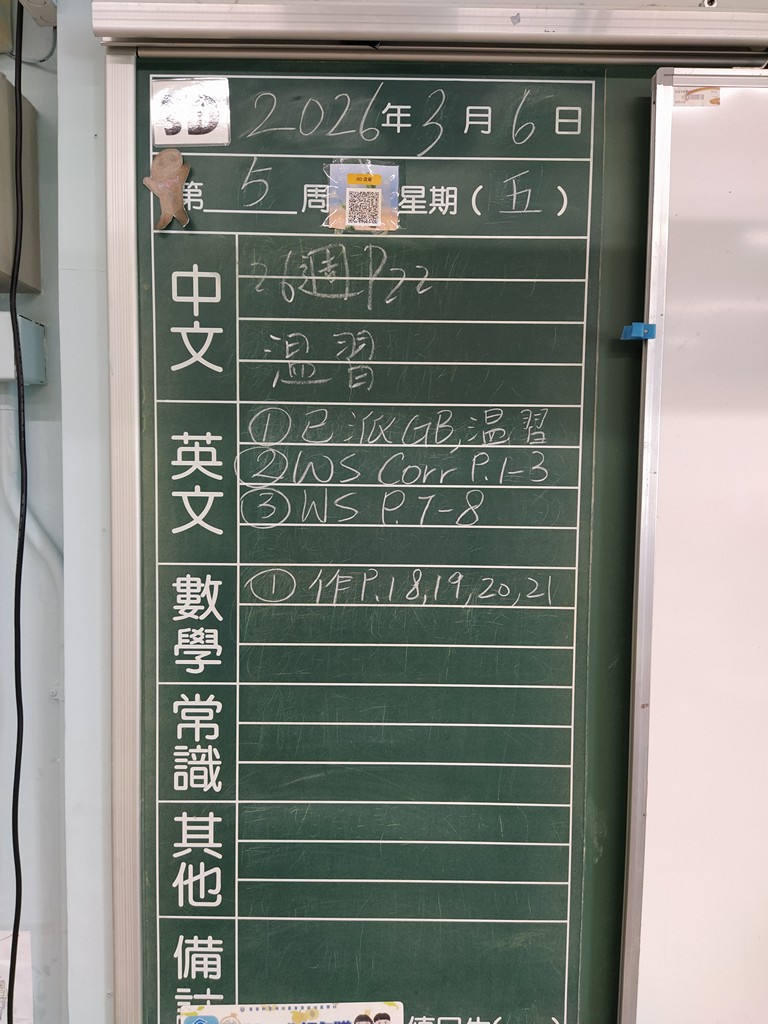 2026年3月6日
第5周 星期(五)
中文
26週P22
溫習
英文
①已派GB,溫習
②WS Corr P.1-3
③WS P.7-8
數學
①作P.18,19,20,21
常識
其他
備註